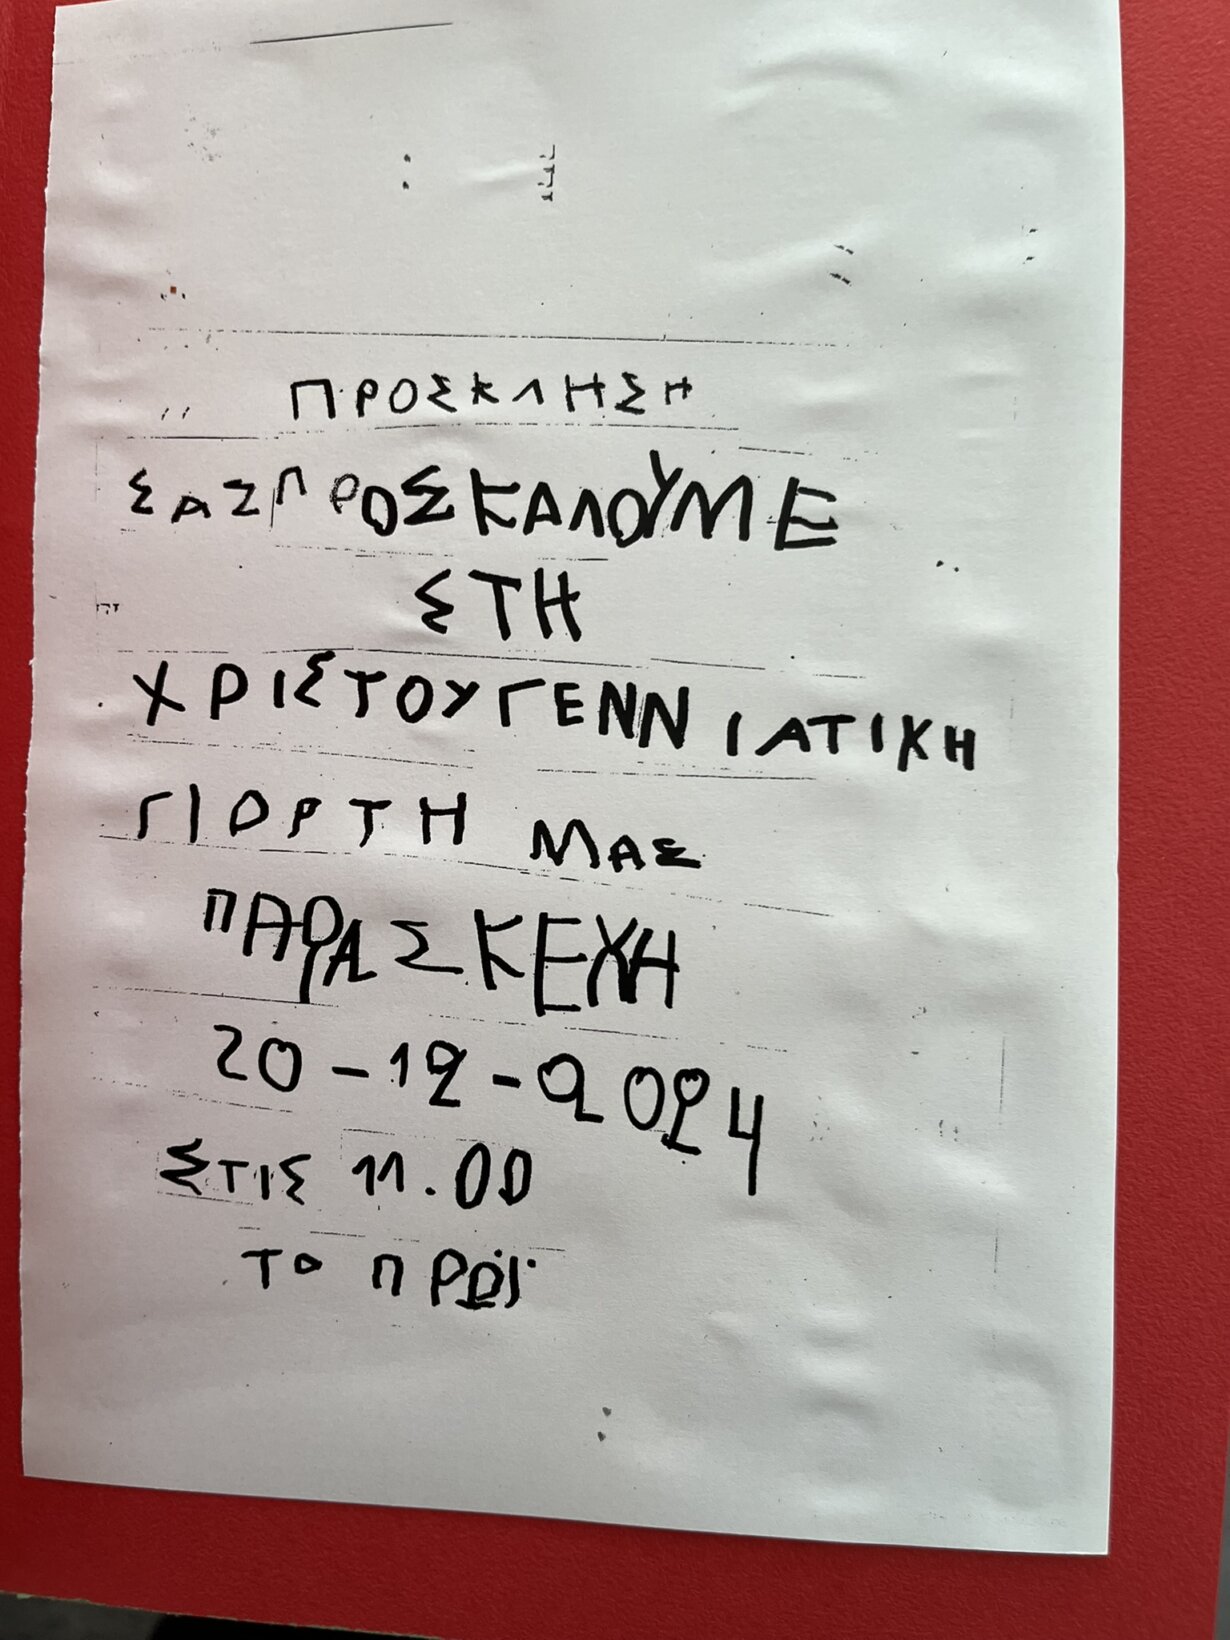 ΠΡΟΣΚΛΗΣΗ
ΣΑΣ ΠΡΟΣΚΑΛΟΥΜΕ
ΣΤΗ
ΧΡΙΣΤΟΥΓΕΝΝΙΑΤΙΚΗ
ΓΙΟΡΤΗ ΜΑΣ
ΠΑΡΑΣΚΕΥΗ
20-12-2024
ΣΤΙΣ 11.00
ΤΟ ΠΡΩΪ